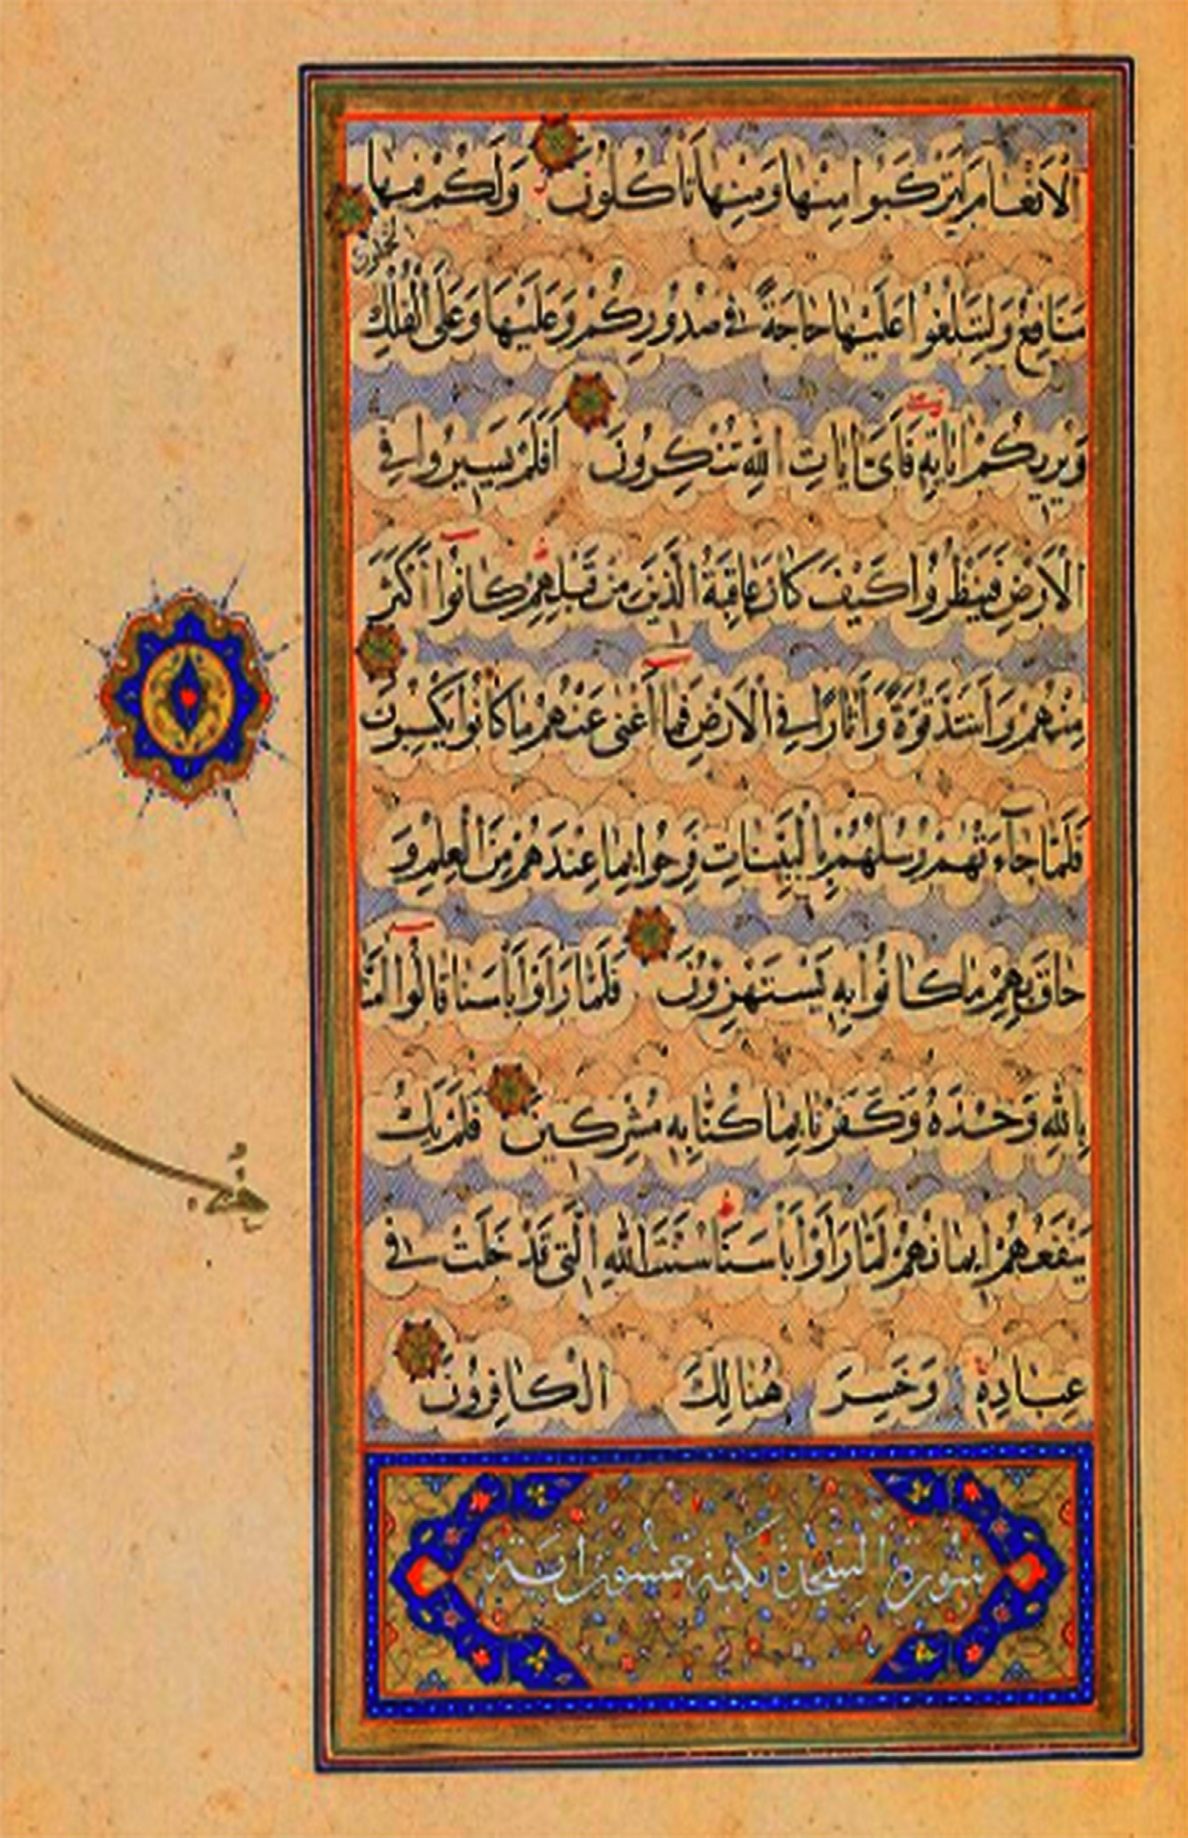 الْاَنْعَامَ لِتَرْكَبُوا مِنْهَا وَمِنْهَا تَأْكُلُونَ وَلَكُمْ فيهَا
مَنَافِعُ وَلِتَبْلُغُوا عَلَيْهَا حَاجَةً فى صُدُورِكُمْ وَعَلَيْهَا وَعَلَى الْفُلْكِ
تُحْمَلُونَ
وَيُرِيكُمْ اٰيَاتِهِ فَاَىَّ اٰيَاتِ اللّٰهِ تُنْكِرُونَ اَفَلَمْ يَسيرُوا فِى
الْاَرْضِ فَيَنْظُرُوا كَيْفَ كَانَ عَاقِبَةُ الَّذينَ مِنْ قَبْلِهِمْ كَانُوا اَكْثَرَ
مِنْهُمْ وَاَشَدَّ قُوَّةً وَاٰثَارًا فِى الْاَرْضِ فَمَا اَغْنٰى عَنْهُمْ مَا كَانُوا يَكْسِبُونَ
فَلَمَّا جَاۤءَتْهُمْ رُسُلُهُمْ بِالْبَيِّنَاتِ فَرِحُوا بِمَا عِنْدَهُمْ مِنَ الْعِلْمِ وَ
حَاقَ بِهِمْ مَا كَانُوا بِهِ يَسْتَهْزِؤُنَ فَلَمَّا رَاَوْا بَأْسَنَا قَالُوا اٰمَنَّا
بِاللّٰهِ وَحْدَهُ وَكَفَرْنَا بِمَا كُنَّا بِهِ مُشْرِكينَ فَلَمْ يَكُ
يَنْفَعُهُمْ ايمَانُهُمْ لَمَّا رَاَوْا بَأْسَنَا سُنَّتَ اللّٰهِ الَّتى قَدْ خَلَتْ فى
عِبَادِهِ وَخَسِرَ هُنَالِكَ الْكَافِرُونَ
سورة السجدة مكية خمسون اية